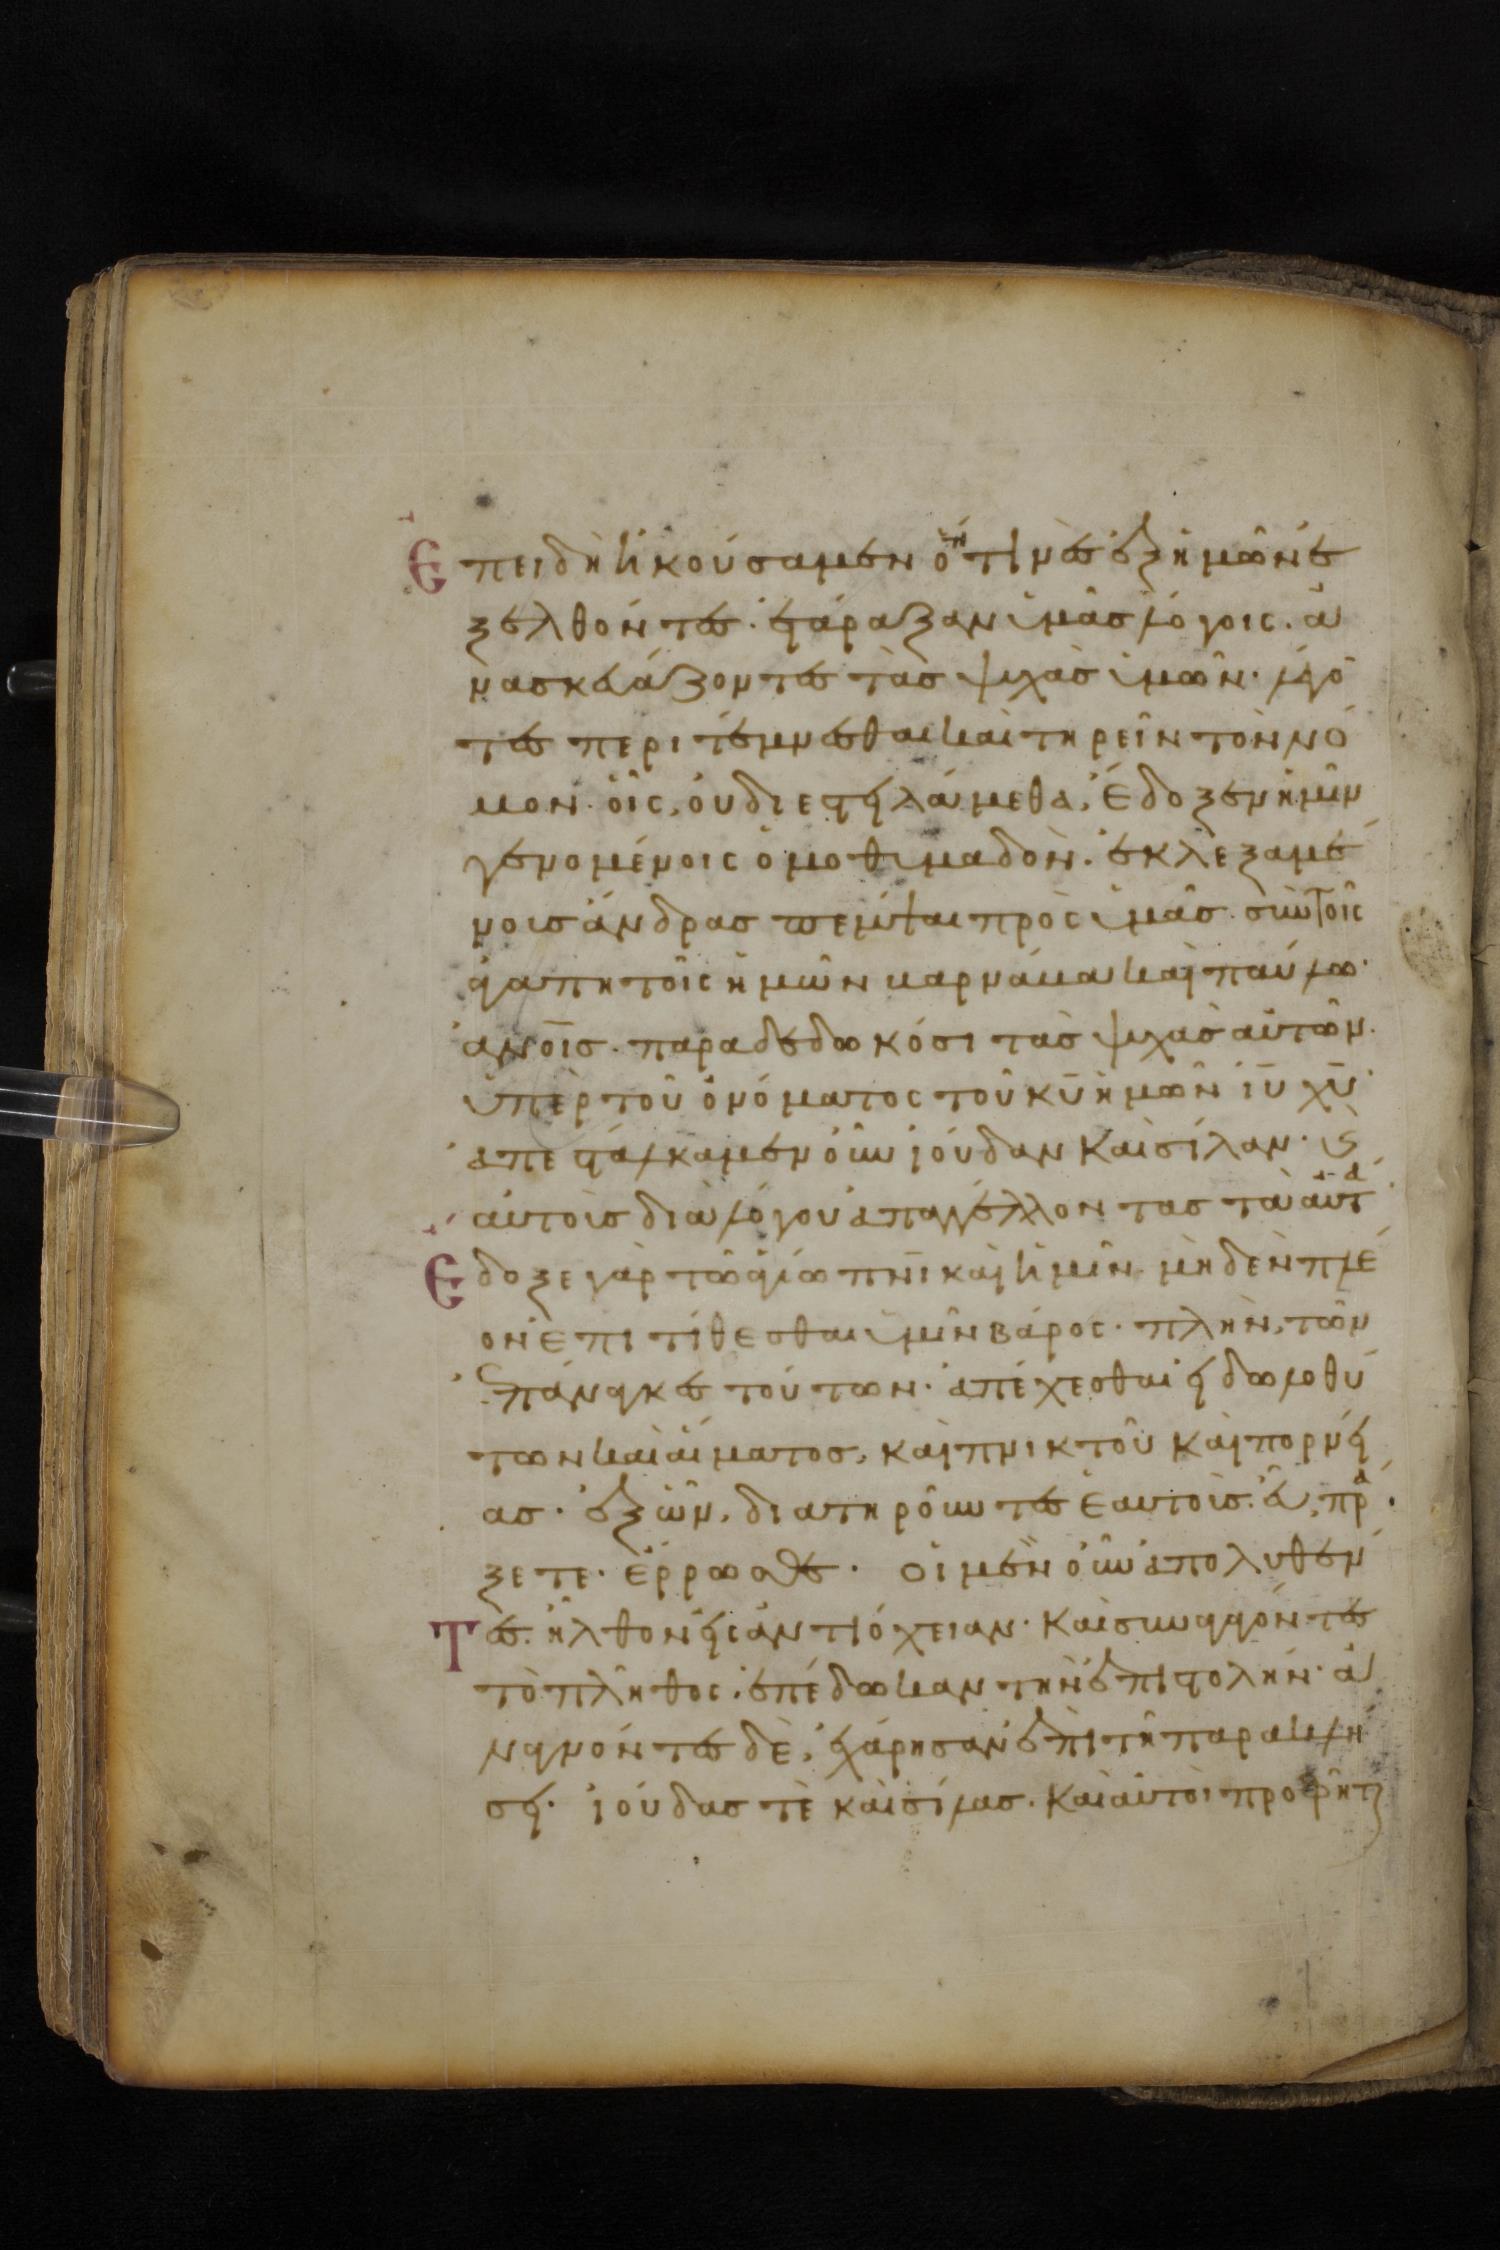 Ἐπειδὴ ἠκούσαμεν ὅτι τινὲς ἐξ ἡμῶν ἐ
ξελθόντες· ἐτάραξαν ὑμᾶς λόγοις. ἀ
νασκευάζοντες τὰς ψυχὰς ὑμῶν· λέγο
τες περιτέμνεσθαι καὶ τηρεῖν τὸν νό
μον· οἷς, οὐ διεστειλάμεθα, Ἔδοξεν ἡμῖν
γενομένοις ὁμοθυμαδόν. ἐκλεξαμέ
νοις ἄνδρας πέμψαι πρὸς ὑμᾶς· σὺν τοῖς
ἀγαπητοῖς ἡμῶν βαρνάβα καὶ παύλω·
ἀνοῖς. παραδεδωκόσι τὰς ψυχὰς αὐτῶν.
ὑπὲρ τοῦ ὀνόματος τοῦ κυ ἡμῶν ιυ χυ·
ἀπεστάλκαμεν οὖν ἰούδαν καὶ σίλαν· καὶ
αὐτοὺς διὰ λόγου ἀπαγγέλλοντας τὰ αὐτά·
Ἔδοξε γὰρ τῶ ἁγίω πνι καὶ ἡμῖν· μηδὲν πλέ
ον ἐπιτίθεσθαι ὑμῖν βάρος· πλὴν, τῶν
ἐπάναγκες τούτων· ἀπέχεσθαι εἰδωλοθύ
των καὶ αἵματος, καὶ πνικτοῦ καὶ πορνεί
ας· ἐξ ὧν, διατηροῦντες ἑαυτοὺς. εὖ, πρά
ξετε· ἔρρωσθε· οἱ μὲν οὖν ἀπολυθέν
Τες. ἦλθον εἰς ἀντιόχειαν· καὶ συναγαγόντες
τὸ πλῆθος. ἐπέδωκαν τὴν ἐπιστολήν· ἀ
ναγνόντες δὲ, ἐχάρησαν ἐπὶ τῆ παρακλή
σει· ἰούδας τὲ καὶ σίλας. καὶ αὐτοὶ προφῆται